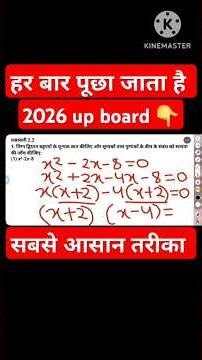 KINEMASTER
हर बार पूछा जाता है
2026 up board 👇
प्रश्नावली 2.2
1. निम्न द्विघात बहुपदों के शून्यक ज्ञात कीजिए और शून्यकों तथा गुणांकों के बीच के संबंध की सत्यता
की जाँच कीजिए:
(1) x²-2x-8
x²-2x-8=0
x²+2x-4x-8=0
x(x+2)-4(x+2)=0
(x+2) (x-4)=
सबसे आसान तरीका